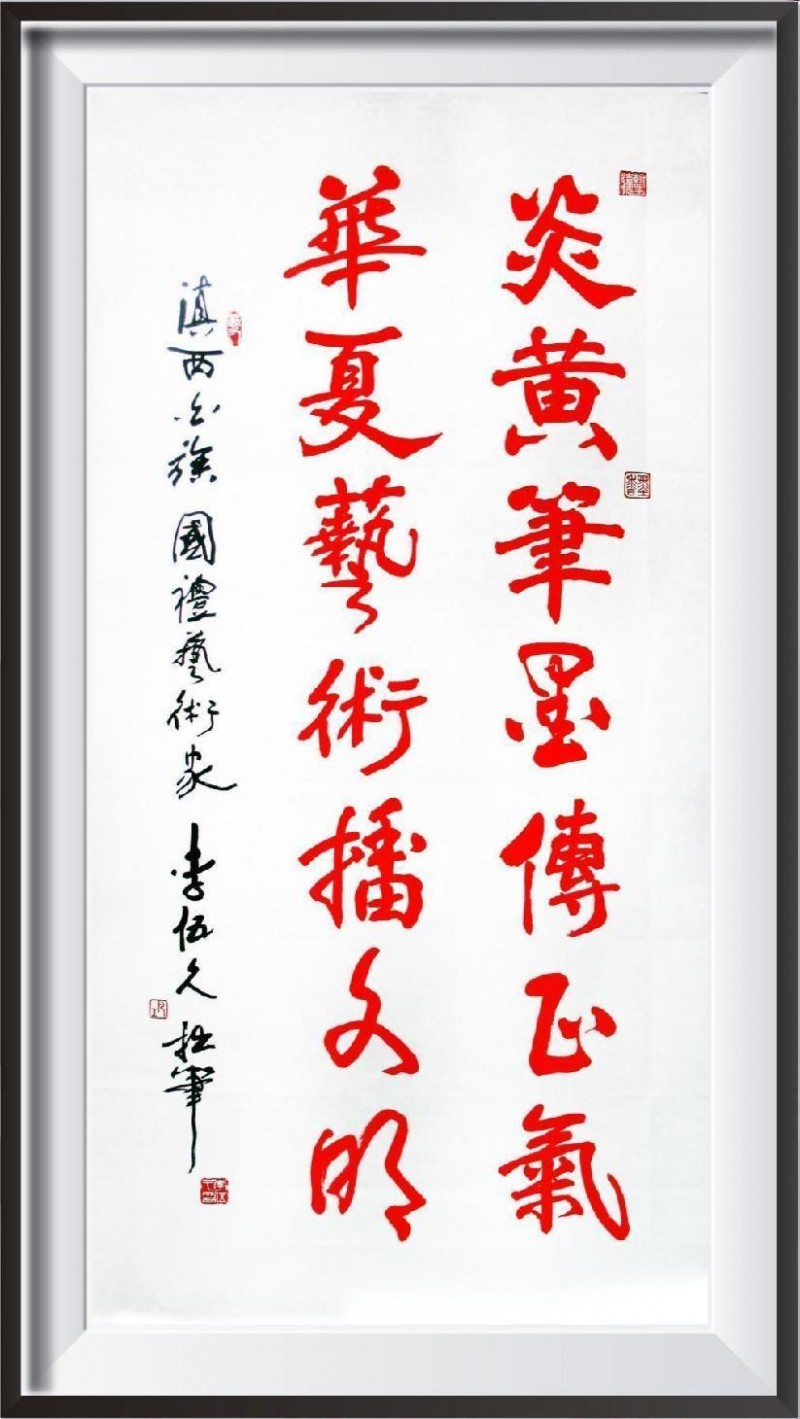 炎黄筆墨傳正氣
華夏藝術播文明
滇西白族 國禮藝術家 李伍久 拙筆